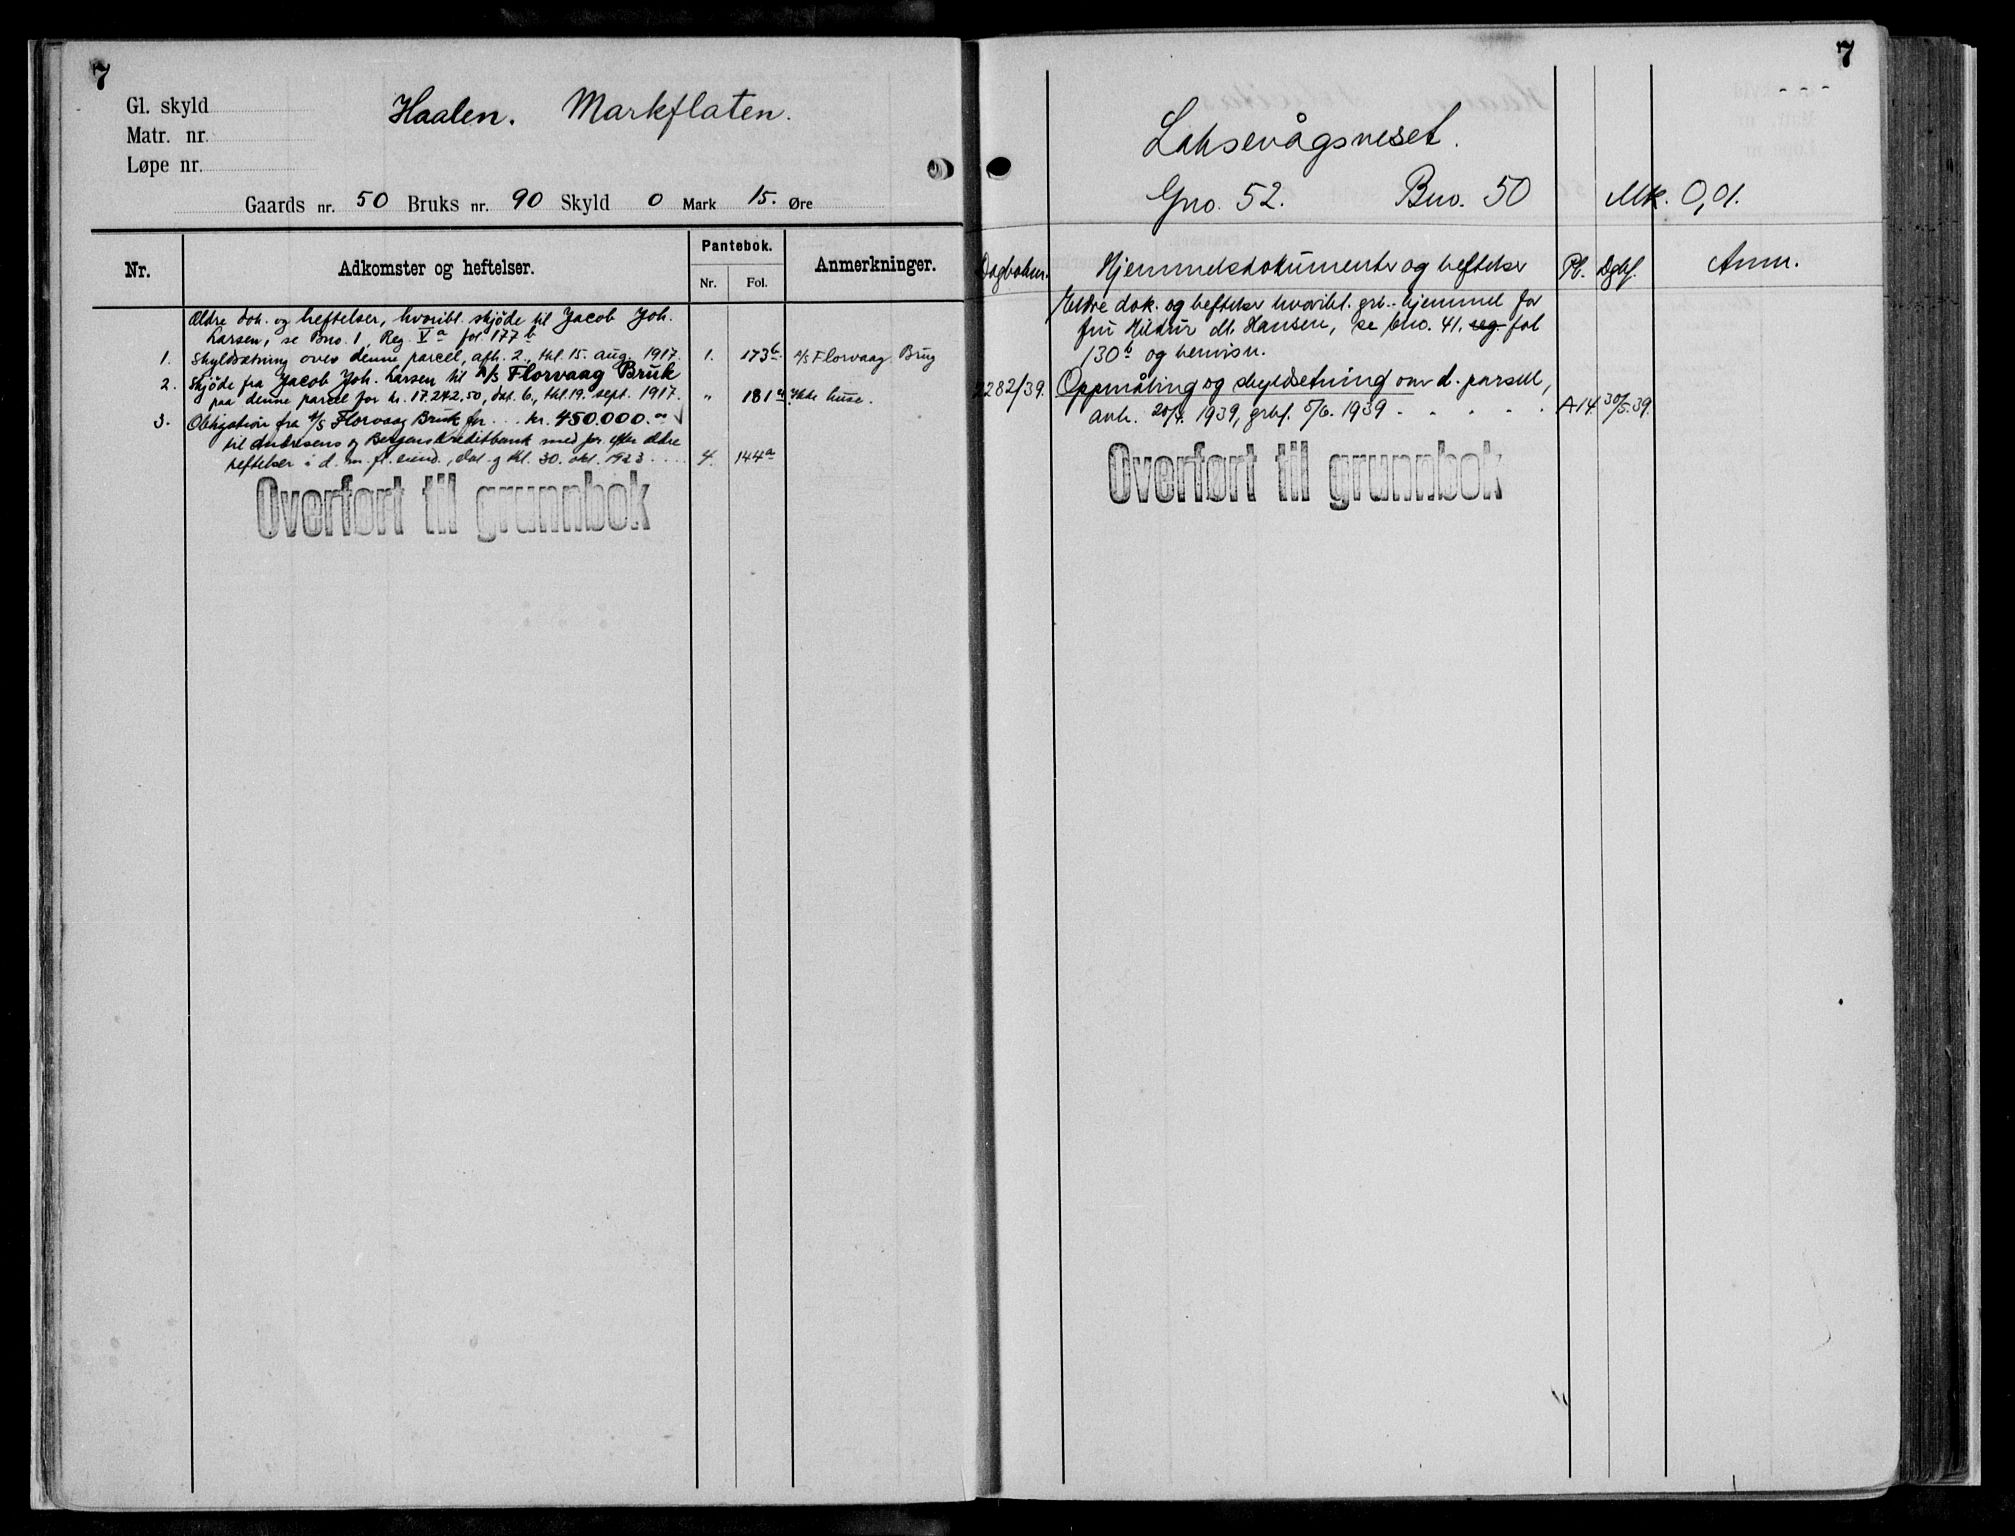 7
Gl. skyld
Matr. nr.
Løpe nr.
Haalen. Markflaten.
Gaards nr. 50 Bruks nr. 90 Skyld 0 Mark 15. Øre
Nr. Adkomster og heftelser. Pantebok. Anmerkninger.
Nr. Fol.
Ældre dok. og heftelser, hvoribl. skjøde til Jacob Joh.
Larsen, se Bno. 1, Reg. V a fol 177 b
1. Skyldsætning over denne parcel, afh. 2., thl. 15. aug. 1917. 1. 173 b. A/S Florvaag Brug
2. Skjøde fra Jacob Joh. Larsen til A/S Florvaag Bruk
paa denne parcel for kr. 17.242,50, dat. 6., thl. 19. sept. 1917. " 181 a Ikke huse.
3. Obligation fra A/S Florvaag Bruk for . . . kr. 450.000.-
til Andresens og Bergens Kreditbank med pr. efter ældre
heftelser i d. m. fl. eiend., dat. og thl. 30. okt. 1923 . . . . 4. 144 a
Overført til grunnbok
7
Laksevågsneset.
Gno. 52. Bno. 50 Mk. 0,01.
Dagboknr. Hjemmelsdokumenter og heftelser Pb. Dgbf. Anm.
Eldre dok. og heftelser hvoribl. grb.-hjemmel for
fru Hildur dtr. Hansen, se bno. 41. reg. fol
130 b og henvisn.
2282/39. Oppmåling og skyldsetning om d. parsell,
avh. 20/4. 1939, grbf. 5/6. 1939 - . . . . A14. 30/5.39.
Overført til grunnbok